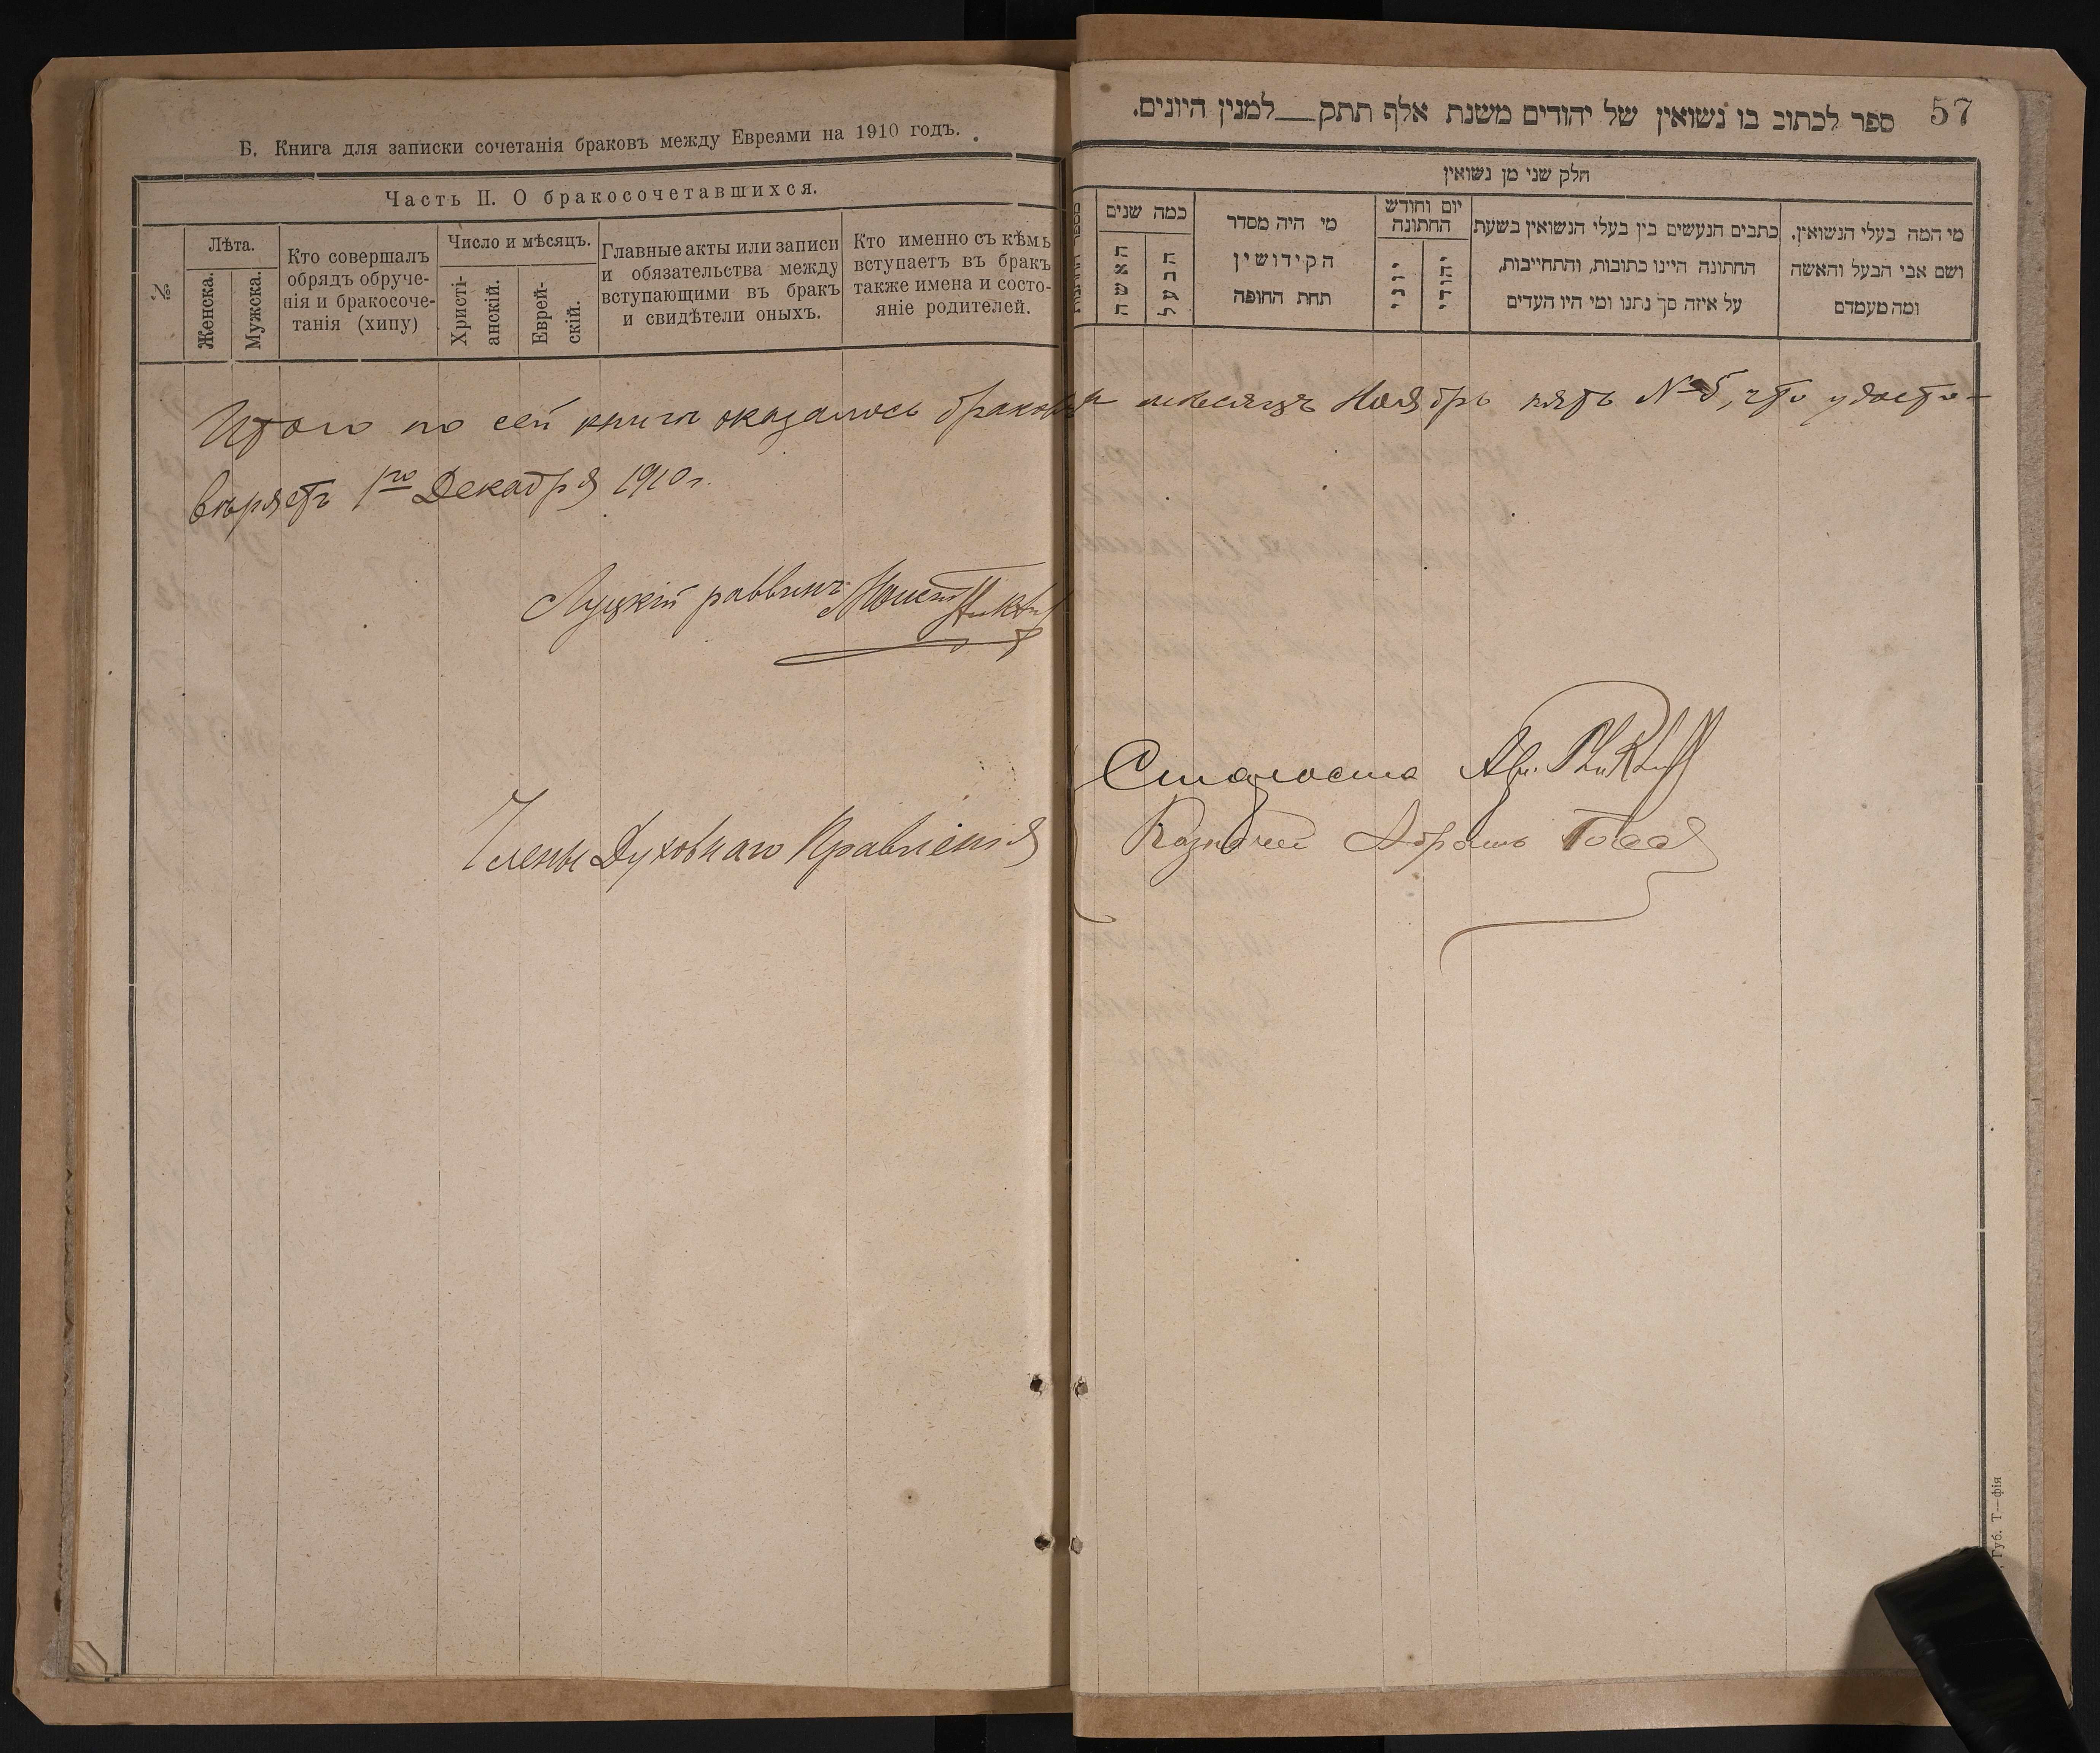 Б. Книга для записки сочетанія браковъ между Евреями на 1910 годъ.
Часть II. О бракосочетавшихся.
№
Лѣта.
Женска.
Мужска.
Кто совершалъ
обрядъ обруче-
нія и бракосоче-
танія (хипу)
Число и мѣсяцъ.
Христі-
анскій.
Еврей-
скій.
Главные акты или записи
и обязательства между
вступающими въ бракъ
и свидѣтели оныхъ.
Кто именно съ кѣмъ
вступаетъ въ бракъ
также имена и состо-
яніе родителей.
57
ספר לכתוב בו נשואין של יהודים משנת אלף תתק__למנין היונים.
חלק שני מן נשואין
כמה שנים
האשה
הבעל
מי היה מסדר
הקידושין
תחת החופה
יום וחודש
החתונה
יוני
יהודי
כתבים הנעשים בין בעלי הנשואין בשעת
החתונה היינו כתובות, והתחייבות,
על איזה סך נתנו ומי היו העדים
מי המה בעלי הנשואין.
ושם אבי הבעל והאשה
ומה מעמדם
Итого по сей книге оказалось браковъ мѣсяцъ Ноябрь пять № 5, что удосто-
вѣряетъ 1го Декабря 1910 г.
Луцкій раввинъ
Члены Духовнаго Правленія
Староста
Казначей Абрамъ
Губ. Т—фія